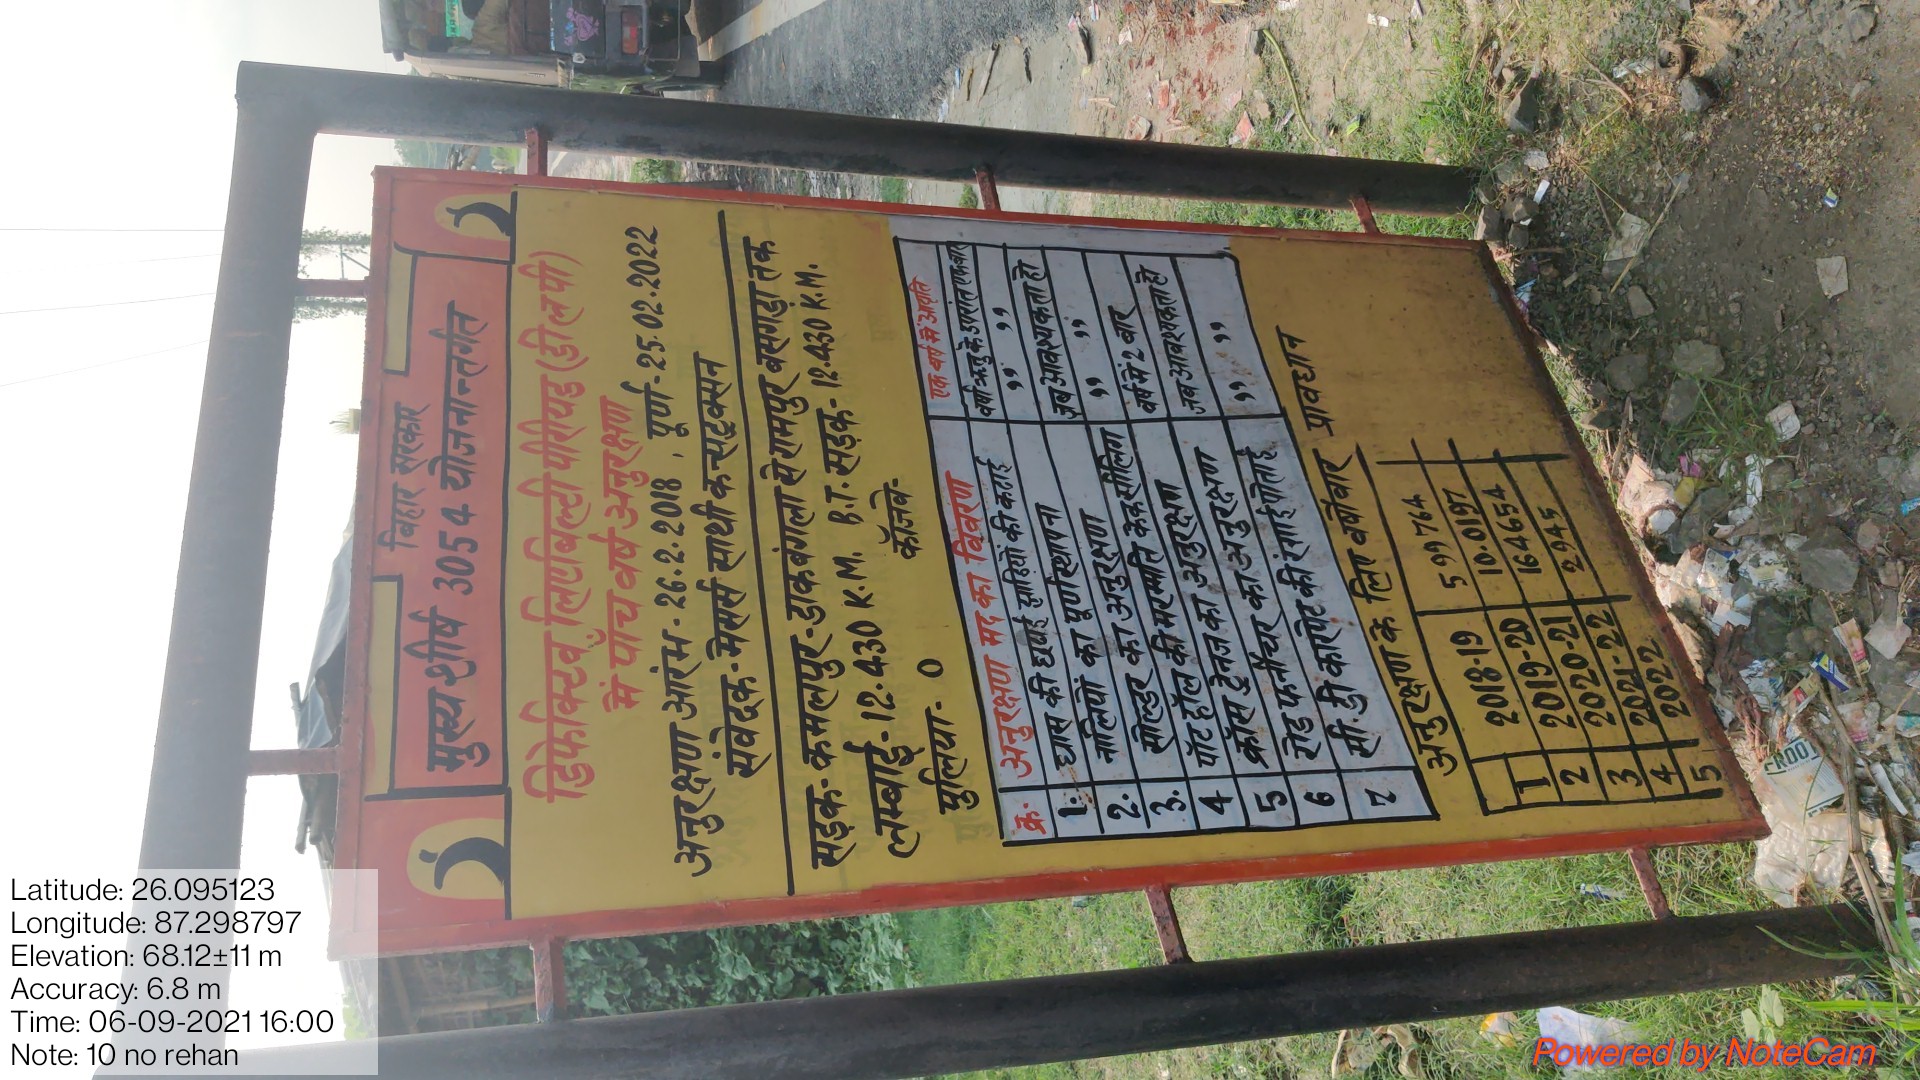 बिहार सरकार
मुख्य शीर्ष 3054 योजनान्तर्गत
डिफेक्टिव लिएबिल्टी पीरियड (डी ल पी)
में पाँच वर्ष अनुरक्षण
अनुरक्षण आरंभ - 26.2.2018, पूर्ण - 25.02.2022
संवेदक - मेसर्स साथी कन्सट्रक्सन
सड़क - कमलपुर - डाकबंगला से रामपुर बसगड़ा तक
लम्बाई - 12.430 K.M. B.T. सड़क - 12.430 K.M.
पुलिया - 0 कॉजवे -
क्र. अनुरक्षण मद का विवरण एक वर्ष में आवृति
1. घास की छपाई झाड़ियों की कटाई वर्षा ऋतु के उपरांत एक बार
2. नालियों का पूर्णस्थापना ,, ,,
3. सोल्डर का अनुरक्षण जब आवश्यकता हो
4 पॉट हॉल की मरम्मति केक सीलिंग ,, ,,
5 क्रॉस ड्रेनेज का अनुरक्षण वर्ष में 2 बार
6 रोड फर्नीचर का अनुरक्षण जब आवश्यकता हो
7 सी.डी कारपेट की रंगाई पोताई ,, ,,
अनुरक्षण के लिए वर्षोवार प्रावधान
1 2018-19 5.99774
2 2019-20 10.0197
3 2020-21 16.4654
4 2021-22 2.945
5 2022
Latitude: 26.095123
Longitude: 87.298797
Elevation: 68.12±11 m
Accuracy: 6.8 m
Time: 06-09-2021 16:00
Note: 10 no rehan
Powered by NoteCam